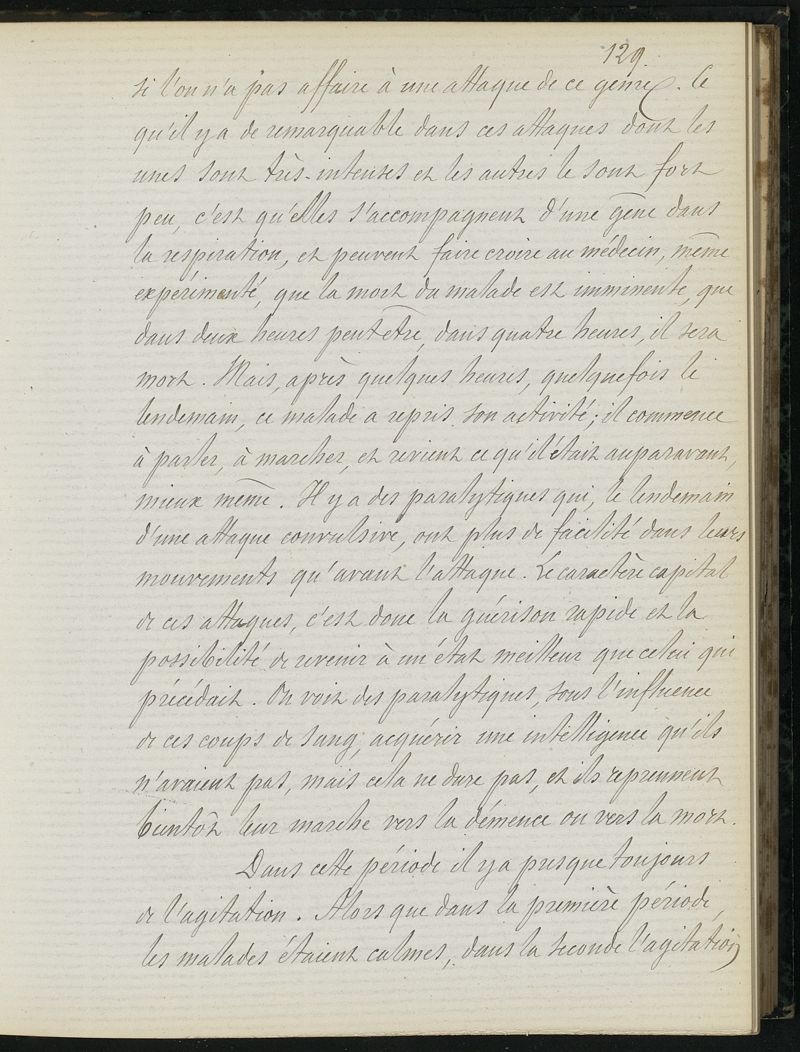 129
si l'on n'a pas affaire à une attaque de ce genre. Ce
qu'il y a de remarquable dans ces attaques dont les
unes sont très-intenses et les autres le sont fort
peu, c'est qu'elles s'accompagnent d'une gêne dans
la respiration, et peuvent faire croire au médecin, même
expérimenté, que la mort du malade est imminente, que
dans deux heures peut être, dans quatre heures, il sera
mort. Mais, après quelques heures, quelquefois le
lendemain, ce malade a repris son activité; il commence
à parler, à marcher, et revient ce qu'il était auparavant,
mieux même. Il y a des paralytiques qui, le lendemain
d'une attaque convulsive, ont plus de facilité dans leurs
mouvements qu'avant l'attaque. Le caractère capital
de ces attaques, c'est donc la guérison rapide et la
possibilité de revenir à un état meilleur que celui qui
précédait. On voit des paralytiques, sous l'influence
de ces coups de sang, acquérir une intelligence qu'ils
n'avaient pas, mais cela ne dure pas, et ils reprennent
bientôt leur marche vers la démence ou vers la mort.
Dans cette période il y a presque toujours
de l'agitation. Alors que dans la première période,
les malades étaient calmes, dans la seconde l'agitation